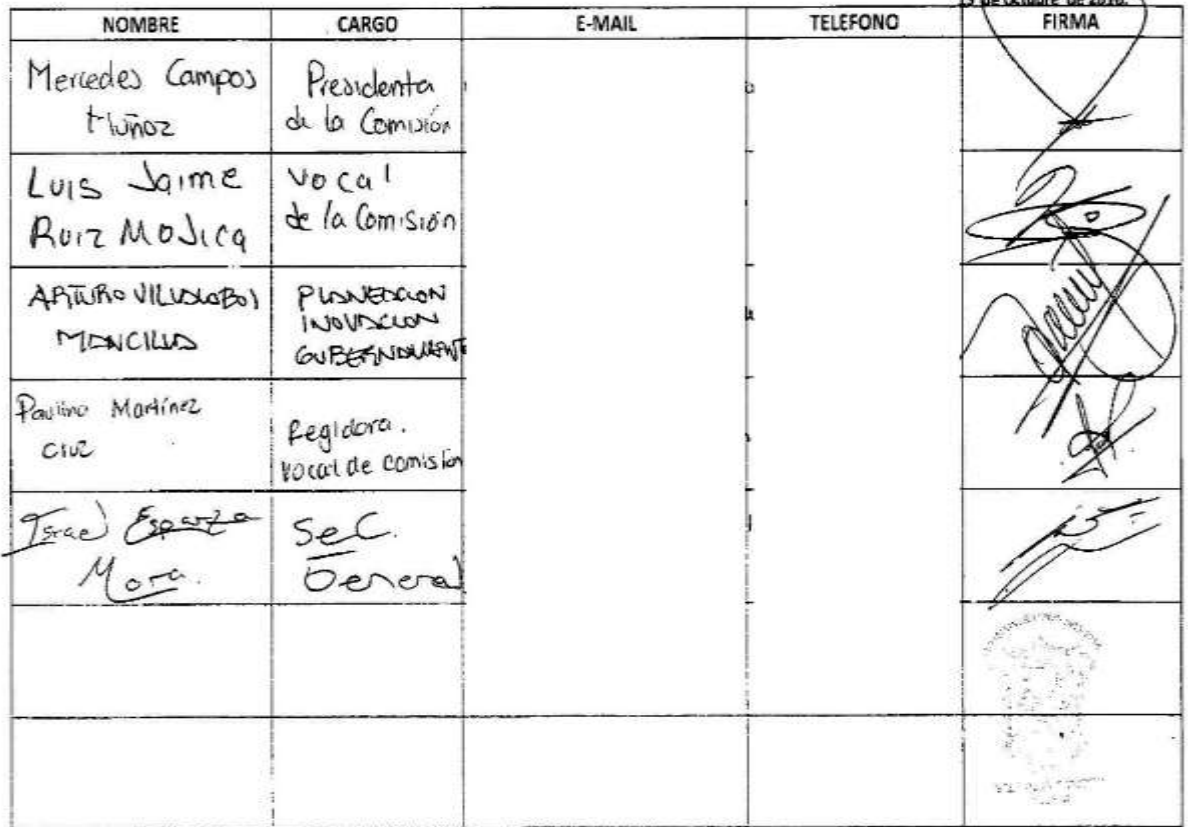 de Octubre de 2016.
NOMBRE CARGO E-MAIL TELEFONO FIRMA
Mercedes Campos
Muñoz
Presidenta
de la Comisión
Luis Jaime
Ruiz Mojica
Vocal
de la Comisión
ARTURO VILLALOBOS
MANCILLA
PLANEACION
INOVACION
GUBERNAMENT
Paulina Martínez
Cruz
Regidora.
vocal de comisión
Israel Esparza
Mora.
Sec.
General